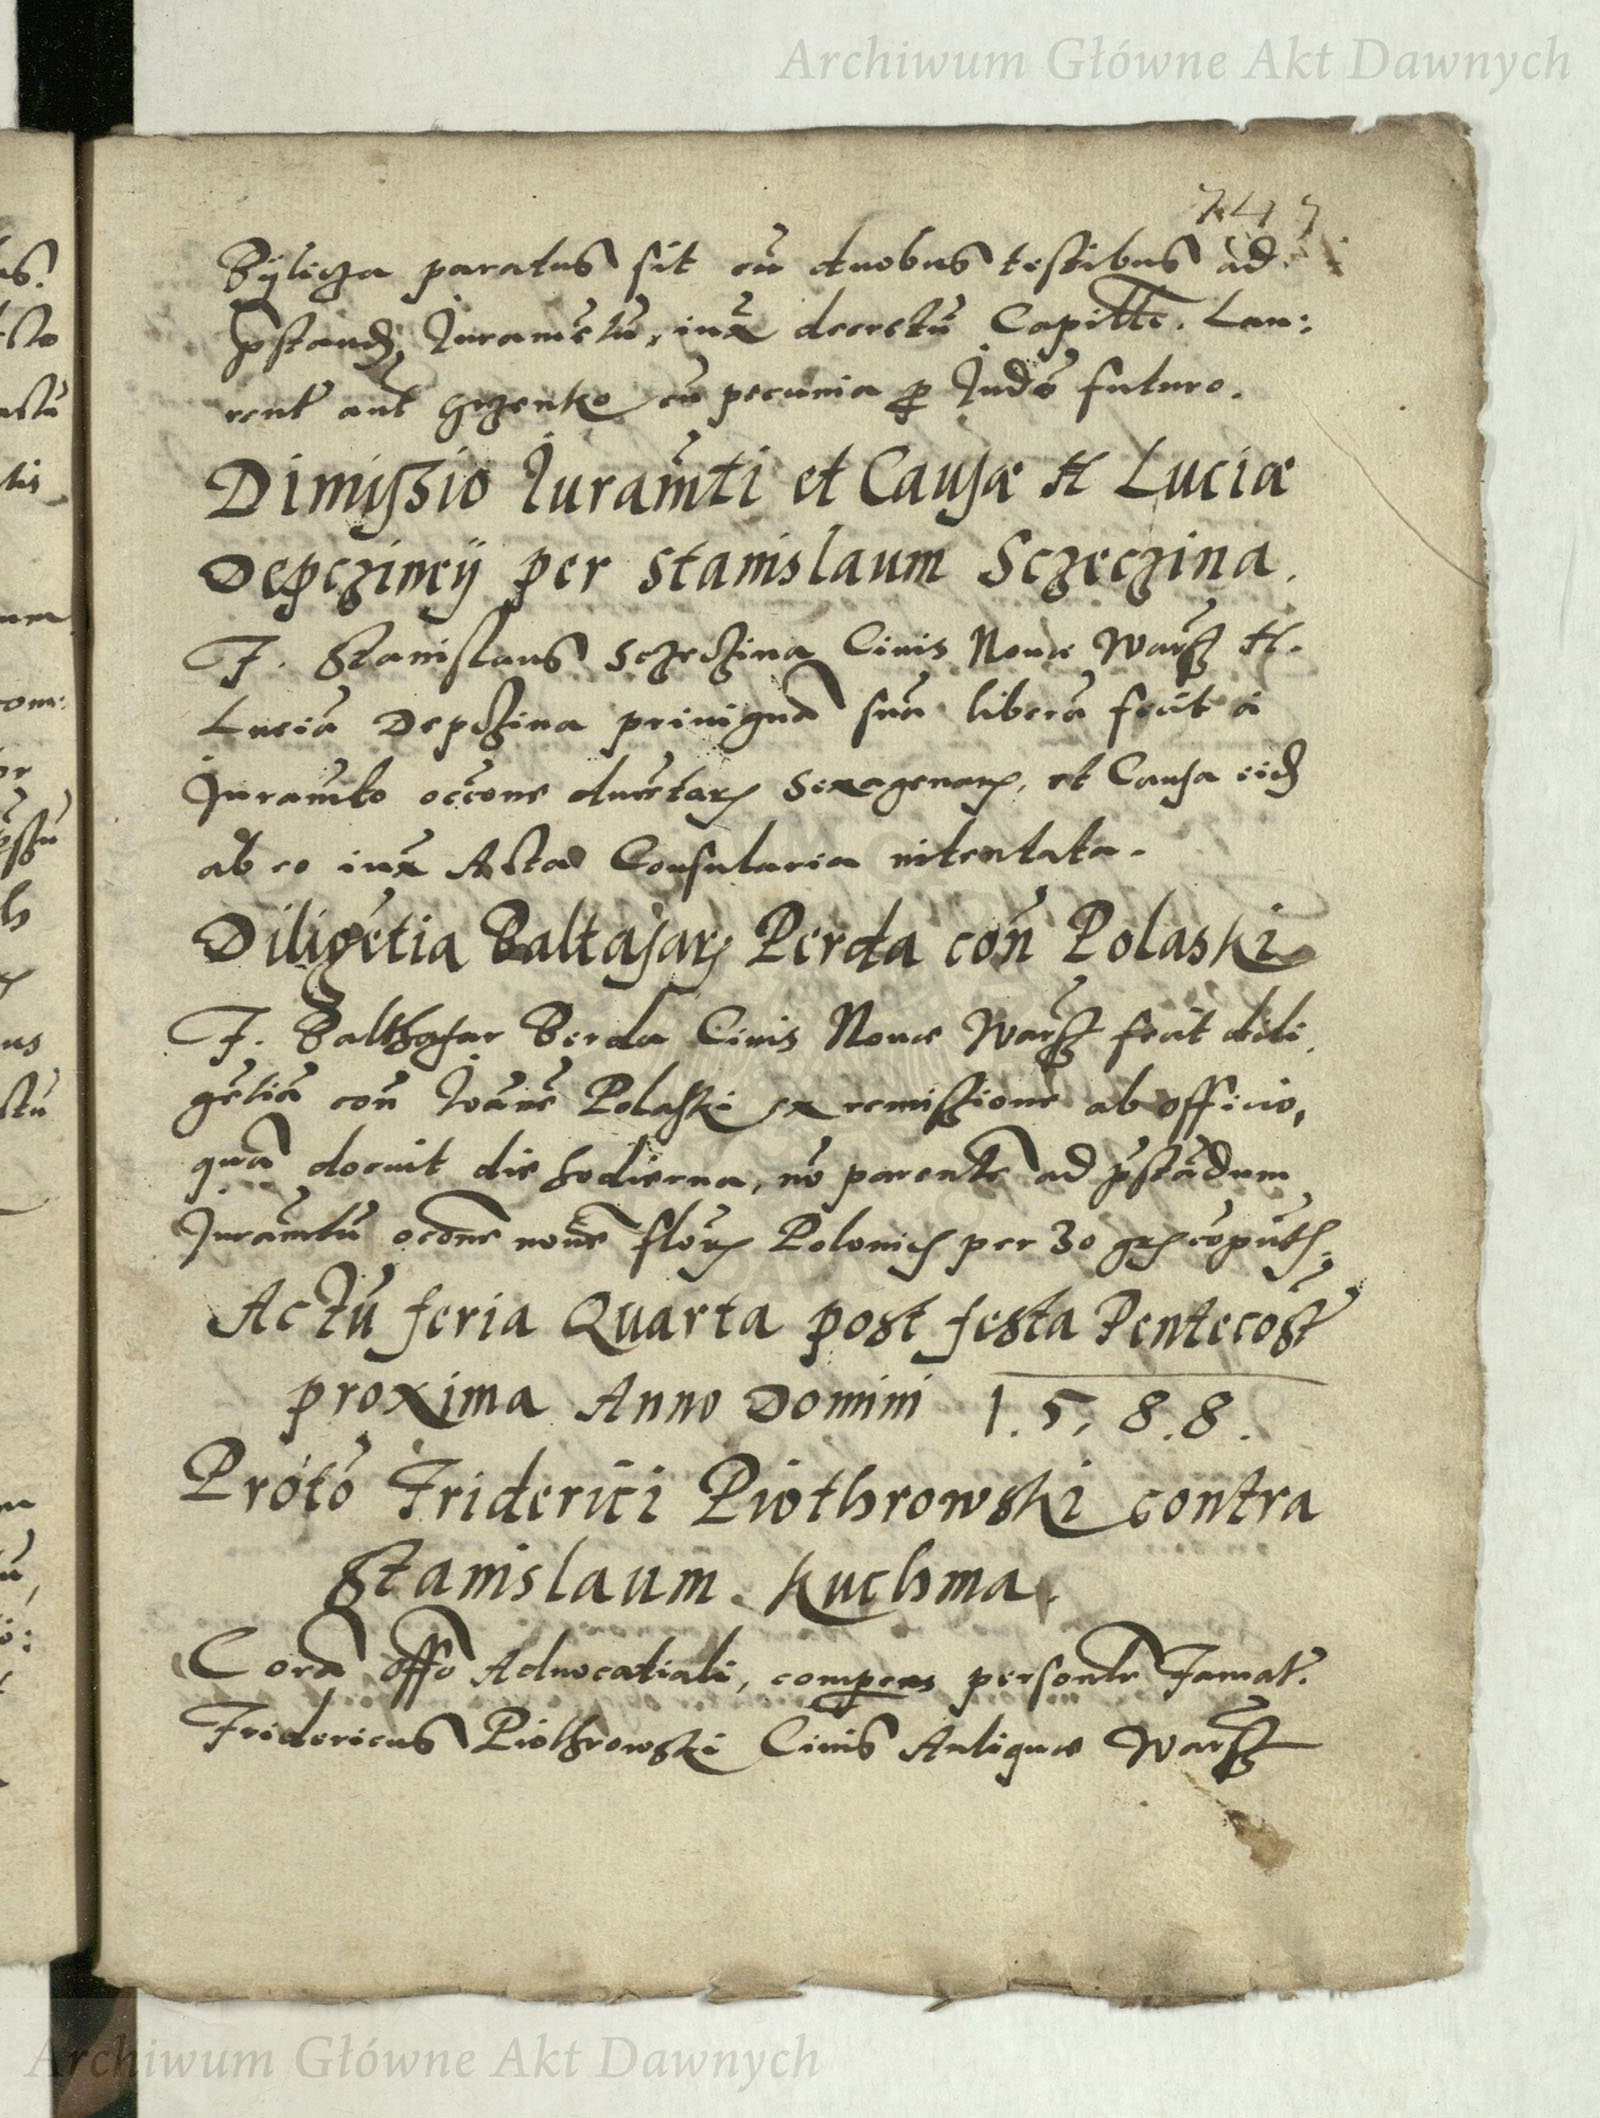 Archiwum Główne Akt Dawnych
747
Bylicza paratus sit cū duobus testibus ad
p̄stand, Iuramētū, iux̄ decretū Capitłi. Lau:
rent aut̄ Grzenko cū pecunia ꝓ Iudō futuro.
Dimissio Iuram̄ti et Causæ H Luciæ
Depcziney per Stanislaum Sczeczina.
F. Stanislaus Sczeczina Civis Nouæ Warsz H.
Luciā Depczina priuignā suā liberā fecit a
Iuram̄to occone ducētarꝫ sexagenarꝫ, et Causa eid
ab eo iux̄ Acta Consularia intentata.
Diligētia Baltasarꝫ Perda con̄ Polaski
F. Balthasar Berda Ciuis Nouæ Warsz fecit dili
gētiā con̄ Ioānē Polaski ex remissione ab officio,
quā docuit die hodierna, nō parente ad p̄stādum
Iuram̄tū occone nouē florꝫ Polonic per 30 grs cōput.
Actū feria Quarta post festa Pentecost
proxima Anno Domini 1.5.8.8.
Protō Friderici Piothrowski contra
Stanislaum Kuchma.
Corā offō Aduocatiali, comparens personalr Famat.
Fridericus Piothrowski Ciuis Antiquæ Warsz
Archiwum Główne Akt Dawnych